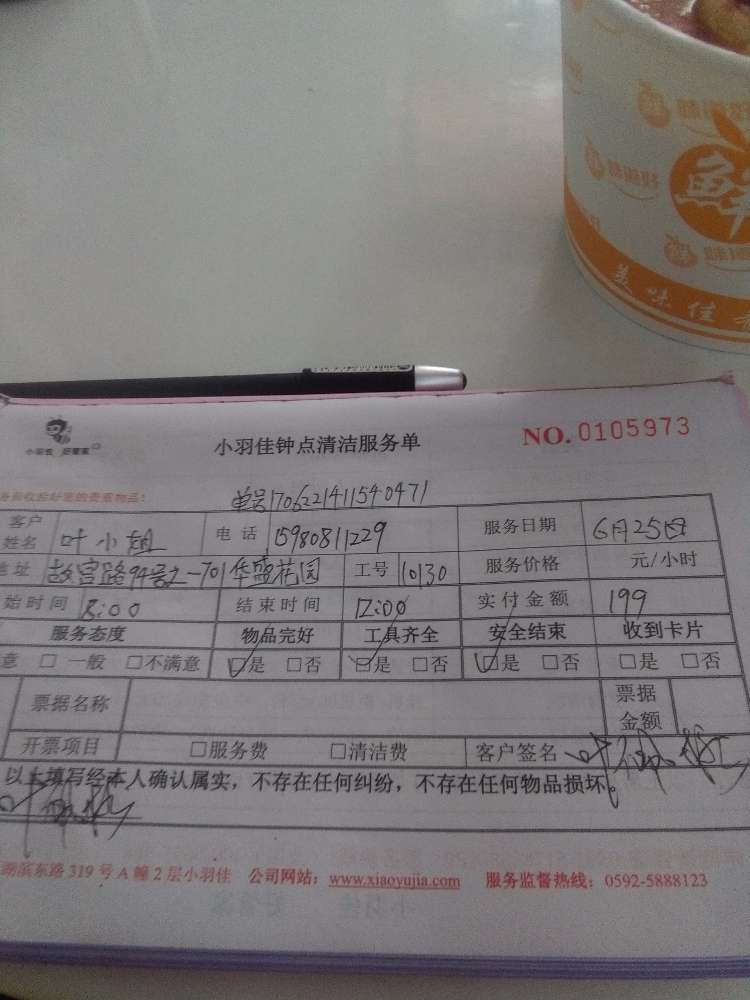 鮮
美味佳
小羽佳 好管家
小羽佳钟点清洁服务单
NO. 0105973
务前收拾好您的贵重物品:
单号1706221411540471
客户姓名 叶小姐 电话 15980811229 服务日期 6月25日
地址 故宫路94号之一701华盛花园 工号 10130 服务价格 元/小时
始时间 8:00 结束时间 12:00 实付金额 199
服务态度 物品完好 工具齐全 安全结束 收到卡片
意 □一般 □不满意 ☑是 □否 ☑是 □否 ☑是 □否 □是 □否
票据名称 票据金额
开票项目 □服务费 □清洁费 客户签名
以上填写经本人确认属实，不存在任何纠纷，不存在任何物品损坏。
湖滨东路319号A幢2层小羽佳 公司网站：www.xiaoyujia.com 服务监督热线：0592-5888123